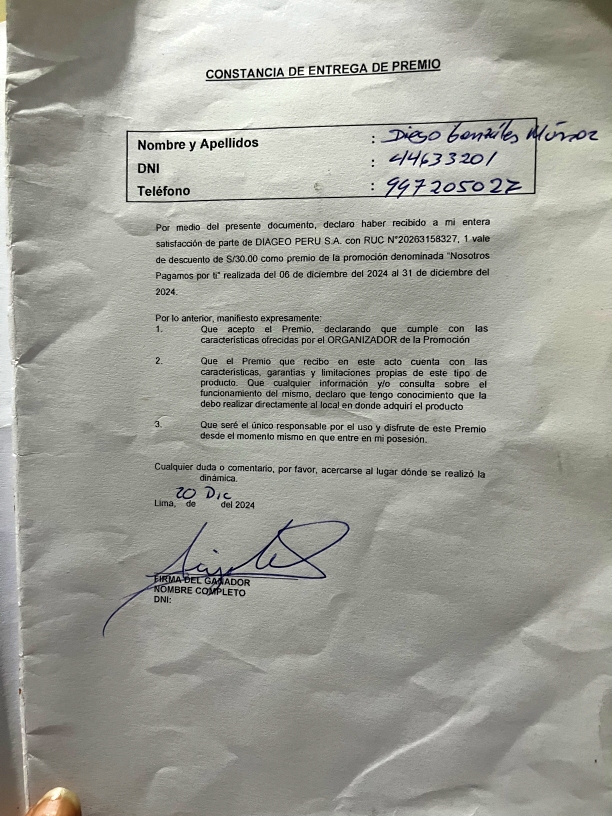 CONSTANCIA DE ENTREGA DE PREMIO
Nombre y Apellidos : Diego Gonzáles Múñoz
DNI : 44633201
Teléfono : 997205027
Por medio del presente documento, declaro haber recibido a mi entera
satisfacción de parte de DIAGEO PERU S.A. con RUC N°20263158327, 1 vale
de descuento de S/30.00 como premio de la promoción denominada "Nosotros
Pagamos por ti" realizada del 06 de diciembre del 2024 al 31 de diciembre del
2024.
Por lo anterior, manifiesto expresamente:
1. Que acepto el Premio, declarando que cumple con las
características ofrecidas por el ORGANIZADOR de la Promoción
2. Que el Premio que recibo en este acto cuenta con las
características, garantías y limitaciones propias de este tipo de
producto. Que cualquier información y/o consulta sobre el
funcionamiento del mismo, declaro que tengo conocimiento que la
debo realizar directamente al local en donde adquirí el producto
3. Que seré el único responsable por el uso y disfrute de este Premio
desde el momento mismo en que entre en mi posesión.
Cualquier duda o comentario, por favor, acercarse al lugar dónde se realizó la
dinámica.
20 Dic
Lima, de del 2024
FIRMA DEL GANADOR
NOMBRE COMPLETO
DNI: